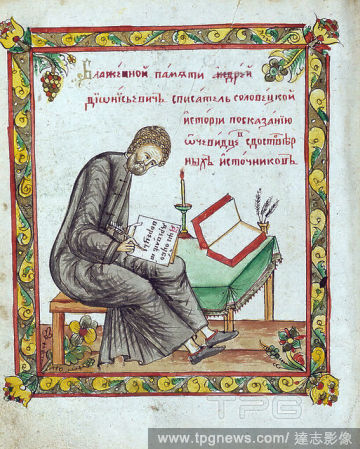 Блаженной памѧти Андрей
Дїѡнисьевичъ списатель соловецкой
исторїи посказанїю
ѡчевидцевъ
ныхъ источниковъ.
TPG
www.tpgnews.com/ 達志影像